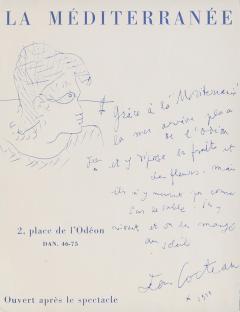 LA MÉDITERRANÉE
Grâce à la Méditerranée
la mer arrive place
de l'Odéon
et y dépose ses fruits et
des fleurs. mais
ils n'y meurent pas comme
sur le sable. Ils y
vivent et on les mange
au soleil
2, place de l'Odéon
DAN. 46-75
Jean Cocteau
Ouvert après le spectacle